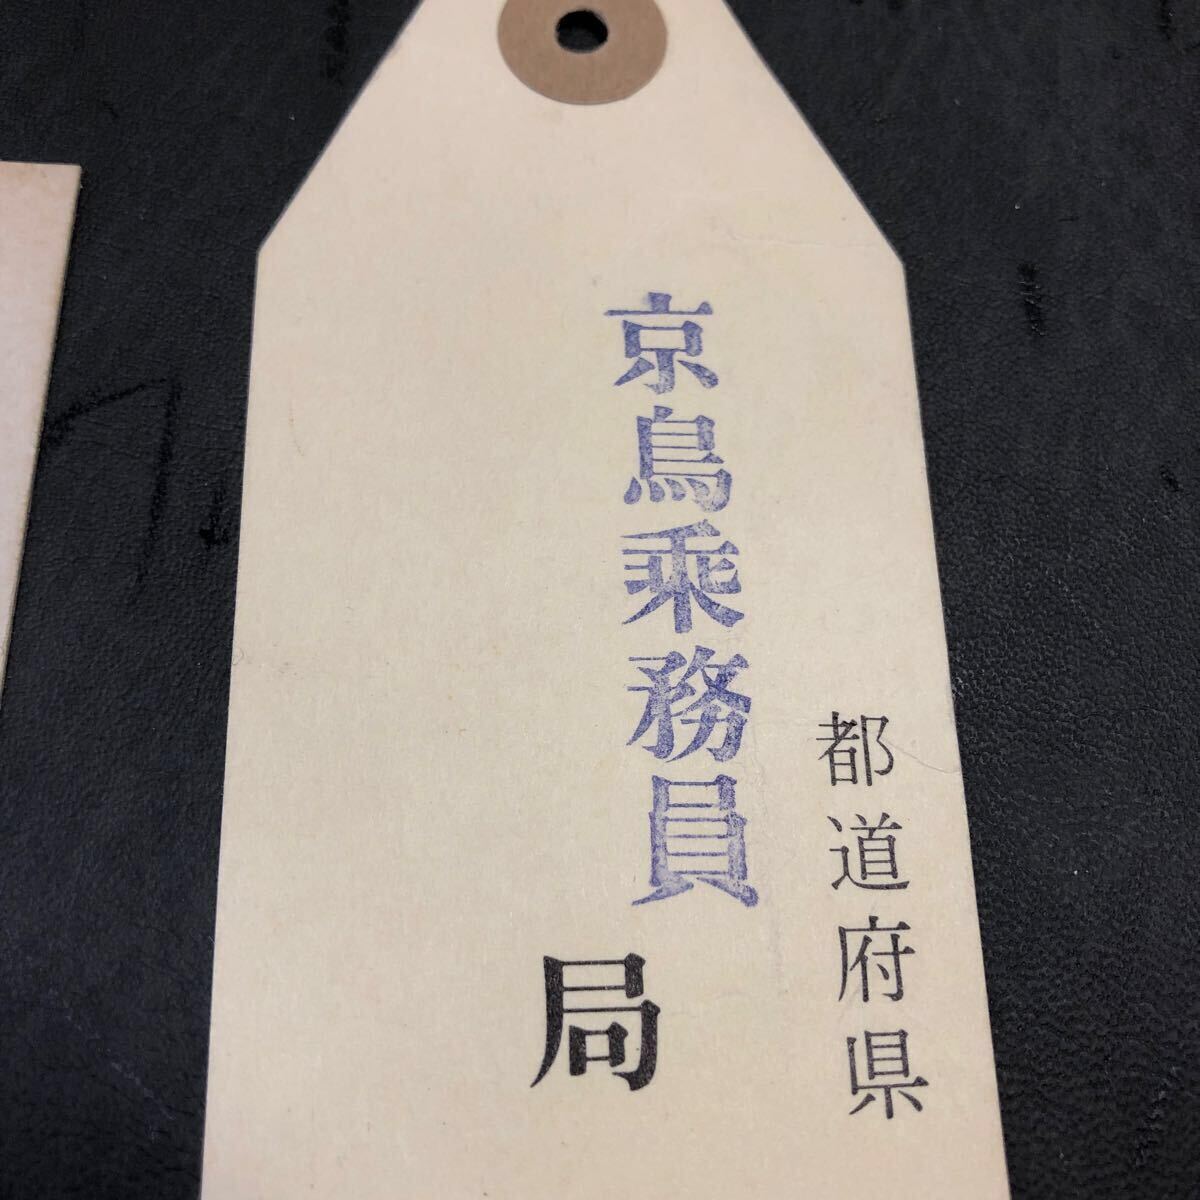 都道府県
京鳥乗務員
局